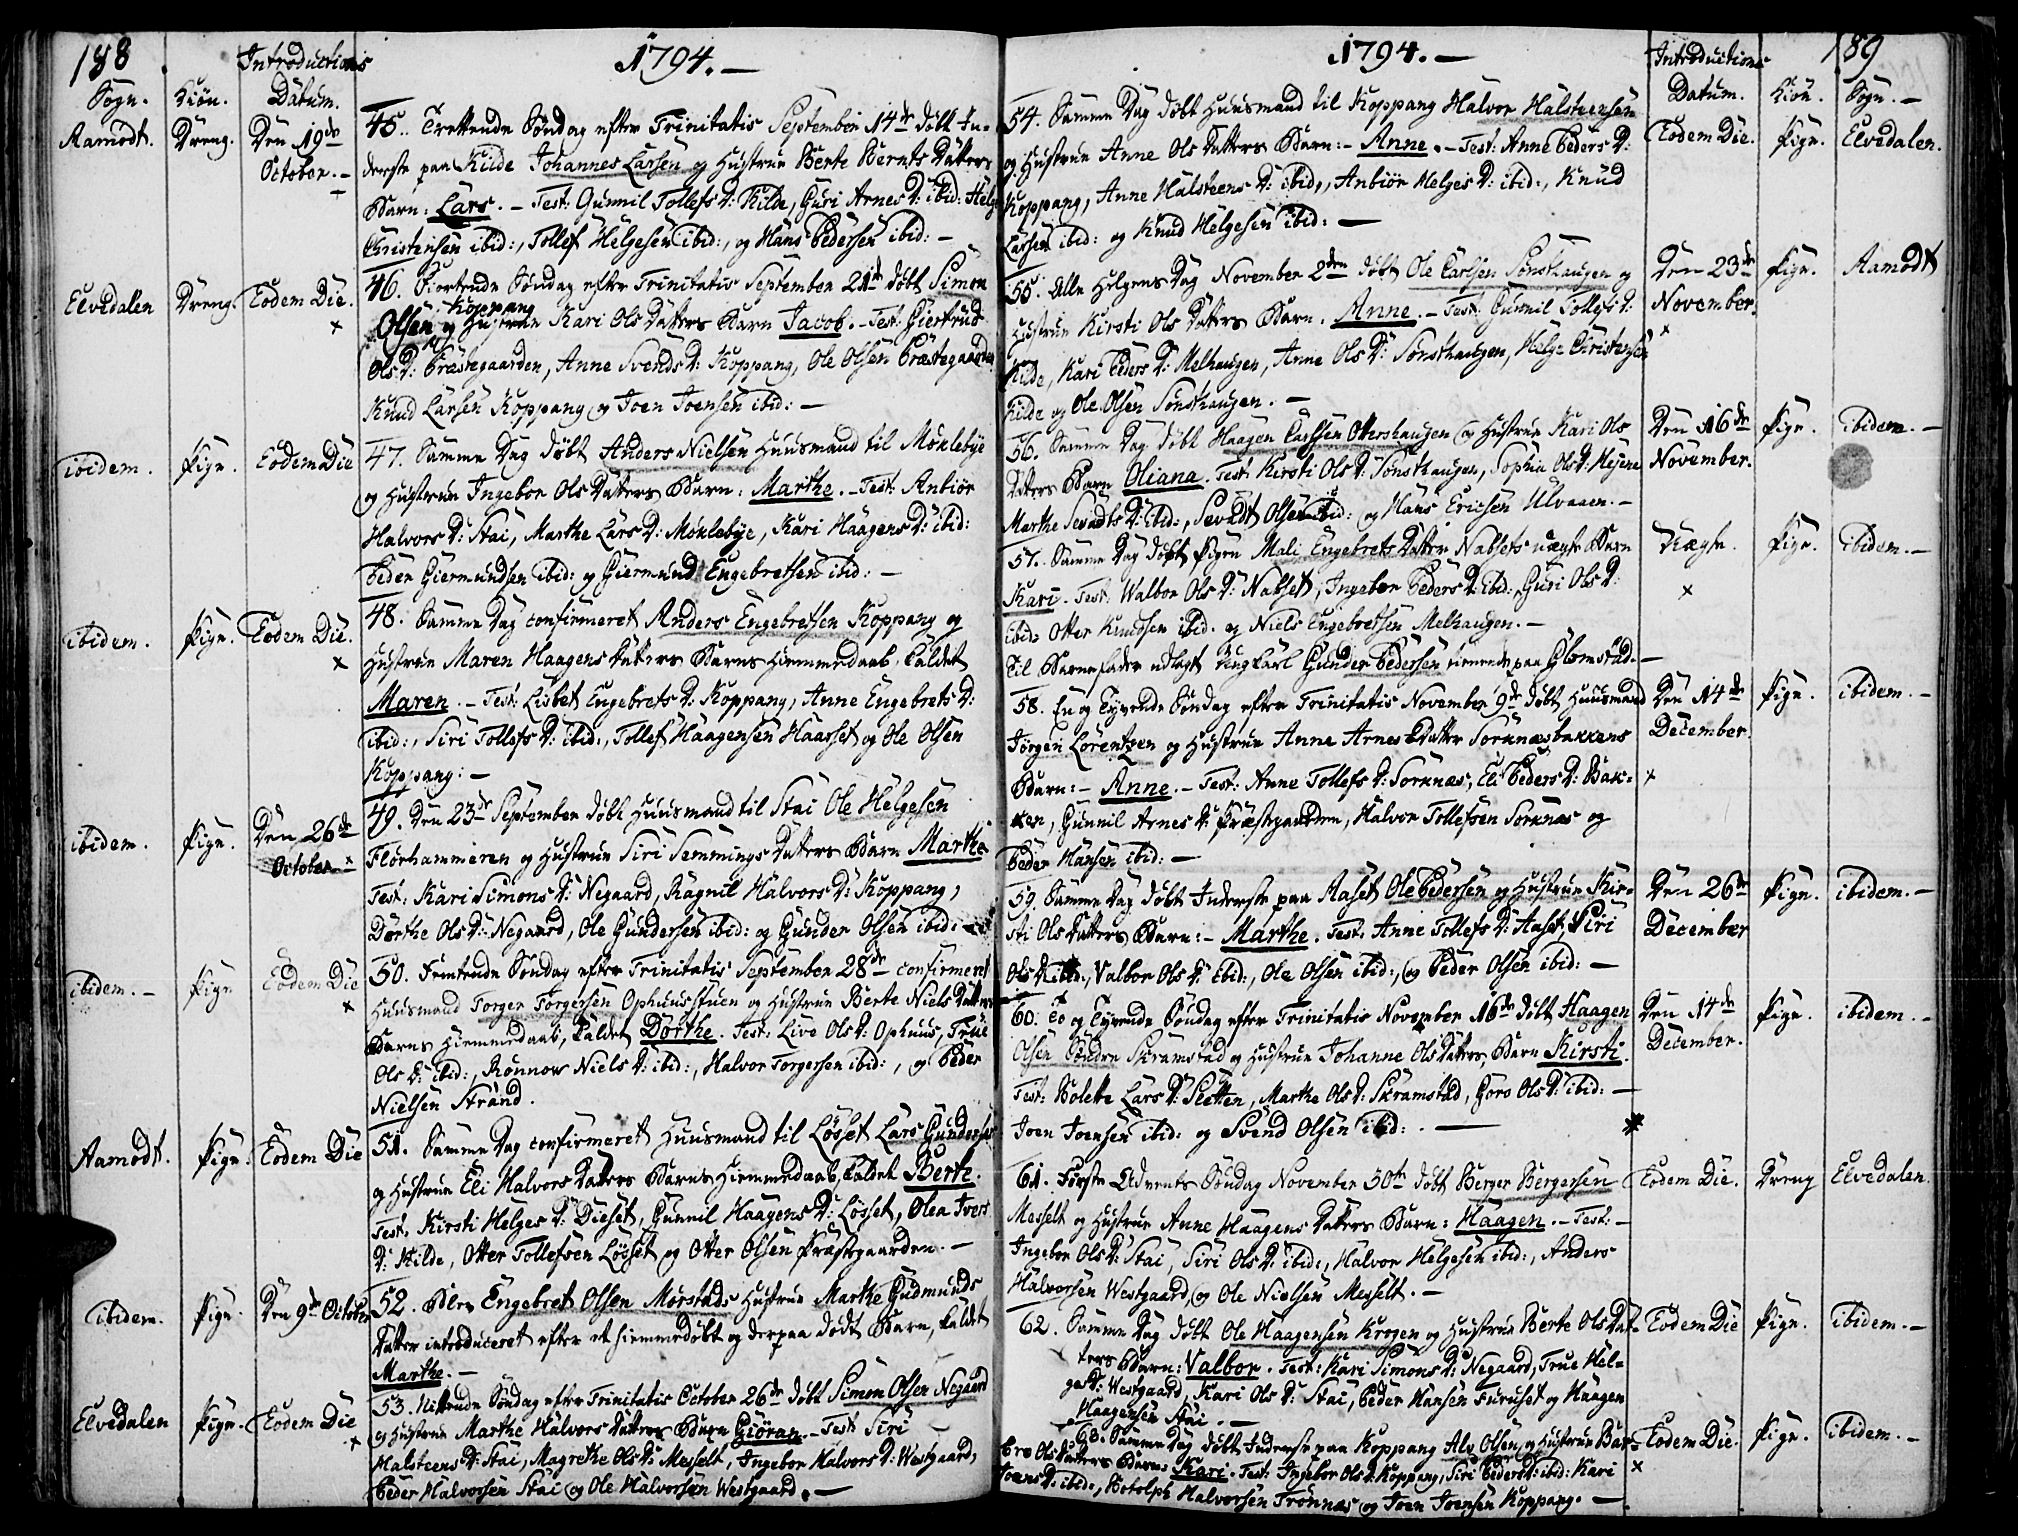 188
Introductions
1794.—
Sogn. Kiön. Datum.
Aamodt. Dreng. Den 19de October.—
45. Trettende Söndag efter Trinitatis September 14de döbt In-
derste paa Kilde Johannes Larsen og Hustrue Berte Bernts Datters
Barn: Lars. — Test: Gunnil Tollefs D: Kilde, Guri Arnes D: ibid: Helge
Christensen ibid:, Tollef Helgesen ibid:, og Hans Pedersen ibid: —
Elvedalen Dreng. Eodem Die. ×
46. Fiortende Söndag efter Trinitatis September 21de döbt Simon
Koppang
Olsen og Hustrue Kari Ols Datters Barn Jacob. — Test: Giertrud
Ols D: Præstegaarden, Anne Svends D: Koppang, Ole Olsen Præstegaarden
Knud Larsen Koppang og Joen Joensen ibid: —
ibidem. Pige. Eodem Die
47. Samme Dag döbt Anders Nielsen Huusmand til Möklebye
og Hustrue Ingebor Ols Datters Barn: Marthe. — Test: Anbiör
Halvors D: Stai, Marthe Lars D: Möklebye, Kari Haagens D: ibid:
Peder Giermundsen ibid: og Giermund Engebretsen ibid: —
ibidem. Pige. Eodem Die. ×
48. Samme Dag confirmeret Anders Engebretsen Koppang og
Hustrue Maren Haagens Datters Barns Hiemmedaab, kaldet
Maren. — Test: Lisbet Engebrets D: Koppang, Anne Engebrets D:
ibid:, Siri Tollefs D: ibid:, Tollef Haagensen Haarset og Ole Olsen
Koppang: —
ibidem. Pige. Den 26de October ×
49. Den 23de September döbt Huusmand til Stai Ole Helgesen
Flörhammeren og Hustrue Siri Semmings Datters Barn Marthe
Test. Kari Simons D: Negaard, Ragnil Halvors D: Koppang,
Dorthe Ols D: Negaard, Ole Gundersen ibid: og Gunder Olsen ibid: —
ibidem. — Pige Eodem Die ×
50. Femtende Söndag efter Trinitatis September 28de confirmeret
Huusmand Torger Torgersen Ophuusstuen og Hustrue Berte Niels Datters
Barns Hiemmedaab, kaldet Dorthe. Test: Live Ols D: Ophuus, True
Ols D: ibid:, Rönnow Niels D: ibid:, Halvor Torgersen ibid:, og Peder
Nielsen Strand.
Aamodt. Pige. Eodem Die
51. Samme Dag confirmeret Huusmand til Lösset Lars Gundersen
og Hustrue Eli Halvors Datters Barns Hiemmedaab, kaldet Berte.
Test. Kirsti Helges D: Dieset, Gunnil Haagens D: Lösset, Olea Ivers
D: Kilde, Otter Tollefsen Lösset og Otter Olsen Præstegaarden. —
ibidem. Pige. Den 9de October
52. Blev Engebret Olsen Mörstads Hustrue Marthe Gudmunds
Datter introduceret efter et hiemmedöbt og derpaa dödt Barn, kaldet
Marthe. —
Elvedalen Pige. Eodem Die ×
53. Nittende Söndag efter Trinitatis October 26de döbt Simon Olsen Negaard
og Hustrue Marthe Halvors Datters Barn Giöran. — Test: Siri
Halsteens D: Stai, Magrethe Ols D: Messelt, Ingebor Halvors D: Westgaard,
Peder Halvorsen Stai og Ole Halvorsen Westgaard. —
1794.—
Introductions 189
Datum. Kiön. Sogn.—
54. Samme Dag döbt Huusmand til Koppang Halvor Halsteensen
Eodem Die. Pige. Elvedalen.
og Hustrue Anne Ols Datters Barn: — Anne. — Test: Anne Peders D:
Koppang, Anne Halsteens D: ibid:, Anbiör Helges D: ibid:, Knud
Larsen ibid: og Knud Helgesen ibid: —
55. Alle Helgens Dag November 2den döbt Ole Carlsen Sönsthaugen og
Den 23de November. × Pige. Aamodt
Hustrue Kirsti Ols Datters Barn. Anne. — Test: Gunnil Tollefs D:
Kilde, Kari Peders D: Melhaugen, Anne Ols D: Sönsthaugen, Helge Christensen
Kilde og Ole Olsen Sönsthaugen. —
56. Samme Dag döbt Haagen Carlsen Ottershaugen og Hustrue Kari Ols
Den 16de November. Pige. ibidem. —
Datters Barn Oliana. Test: Kirsti Ols D: Sönsthaugen, Sophie Ols D:
Marthe Sevadts D: ibid:, Sevadt Olsen ibid: og Hans Ericsen Ulvaaen. —
57. Samme Dag döbt Pigen Mali Engebrets Datter Nabsets uægte Barn
Uægte. × Pige. ibidem. —
Kari. Test: Walbor Ols D: Nabset, Ingebor Peders D: ibid:, Guri Ols D:
ibid: Otter Knudsen ibid. og Niels Engebretsen Melhaugen. —
Til Barnefader udlagt Ungkarl Gunder Pedersen tienende paa Glomstad. —
58. En og Tyvende Söndag efter Trinitatis November 9de döbt Huusmand
Den 14de December. × Pige. ibidem. —
Jörgen Lorentzen og Hustrue Anne Arnes Datter Sorknæsbakkens
Barn: — Anne. — Test: Anne Tollefs D: Sorknæs, Eli Peders D: Bak-
ken, Gunnil Arnes D: Præstegaarden, Halvor Tollefsen Sorknæs og
Peder Hansen ibid: —
59. Samme Dag döbt Inderste paa Aaset Ole Pedersen og Hustrue Kir-
Den 26de December Pige. ibidem. —
sti Ols Datters Barn: — Marthe. Test: Anne Tollefs D: Aaset, Siri
Ols D: ibid:, Valbor Ols D: ibid:, Ole Olsen ibid:, og Peder Olsen ibid: —
60. To og Tyvende Söndag efter Trinitatis November 16de döbt Haagen
Den 14de December. Pige. ibidem. —
Olsen Söndre Skramstad og Hustrue Johanne Ols Datters, Barn Kirsti.
Test: Bolette Lars D: Sletten, Marthe Ols D: Skramstad, Goro Ols D: ibid: —
Joen Joensen ibid: og Svend Olsen ibid: —
61. Förste Advents Söndag November 30te döbt Berger Bergersen
Eodem Die. Dreng Elvedalen.
Messelt og Hustrue Anne Haagens Datters Barn: Haagen. — Test: —
Ingebor Ols D: Stai, Siri Ols D: ibid:, Halvor Helgesen ibid:, Anders
Halvorsen Westgaard, og Ole Nielsen Messelt. —
62. Samme Dag döbt Ole Haagensen Krogen og Hustrue Berte Ols Dat-
Eodem Die Pige. ibidem. —
ters Barn: Valbor. Test: Kari Simons D: Negaard, True Hel-
ges D: Westgaard, Kari Ols D: Stai, Peder Hansen Furuset og Haagen
Haagensen Stai. —
63. Samme Dag döbt Inderste paa Koppang Alv Olsen, og Hustrue Bar-
Eodem Die. × Pige. ibidem. —
bro Ols Datters Barn: Kari. Test: Ingebor Ols D: Koppang, Siri Peders D: ibid: Kari
Joens D: ibid:, Botolph Halvorsen Trönnæs og Joen Joensen Koppang. —